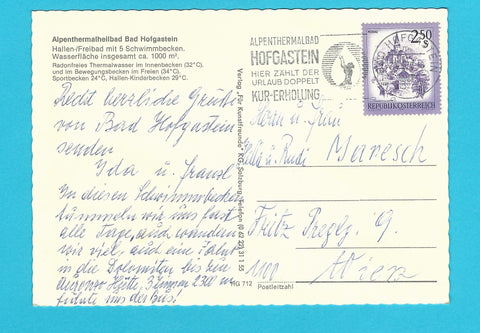 Alpenthermalheilbad Bad Hofgastein
Hallen-/Freibad mit 5 Schwimmbecken.
Wasserfläche insgesamt ca. 1000 m².
Radonfreies Thermalwasser im Innenbecken (32°C).
und im Bewegungsbecken im Freien (34°C).
Sportbecken 24°C, Hallen-Kinderbecken 29°C.
Recht herzliche Grüße
von Bad Hofgastein
senden
Ida u. Franzl
In diesen Schwimmbecken
tummeln wir uns fast
alle Tage, auch wandern
wir viel, auch eine Fahrt
in die Dolomiten bis zur
Hütte, 2300 m
führte uns der Bus!
Verlag „Für Kunstfreunde" KG, Salzburg, Telefon (0 62 22) 31 1 55
HG 712
ALPENTHERMALBAD
HOFGASTEIN
HIER ZÄHLT DER
URLAUB DOPPELT
KUR-ERHOLUNG
BAD HOFGASTEIN
2.50
REPUBLIK ÖSTERREICH
Herrn u. Frau
u. Rudi Maresch
Fritz 9.
1100 Wien
Postleitzahl